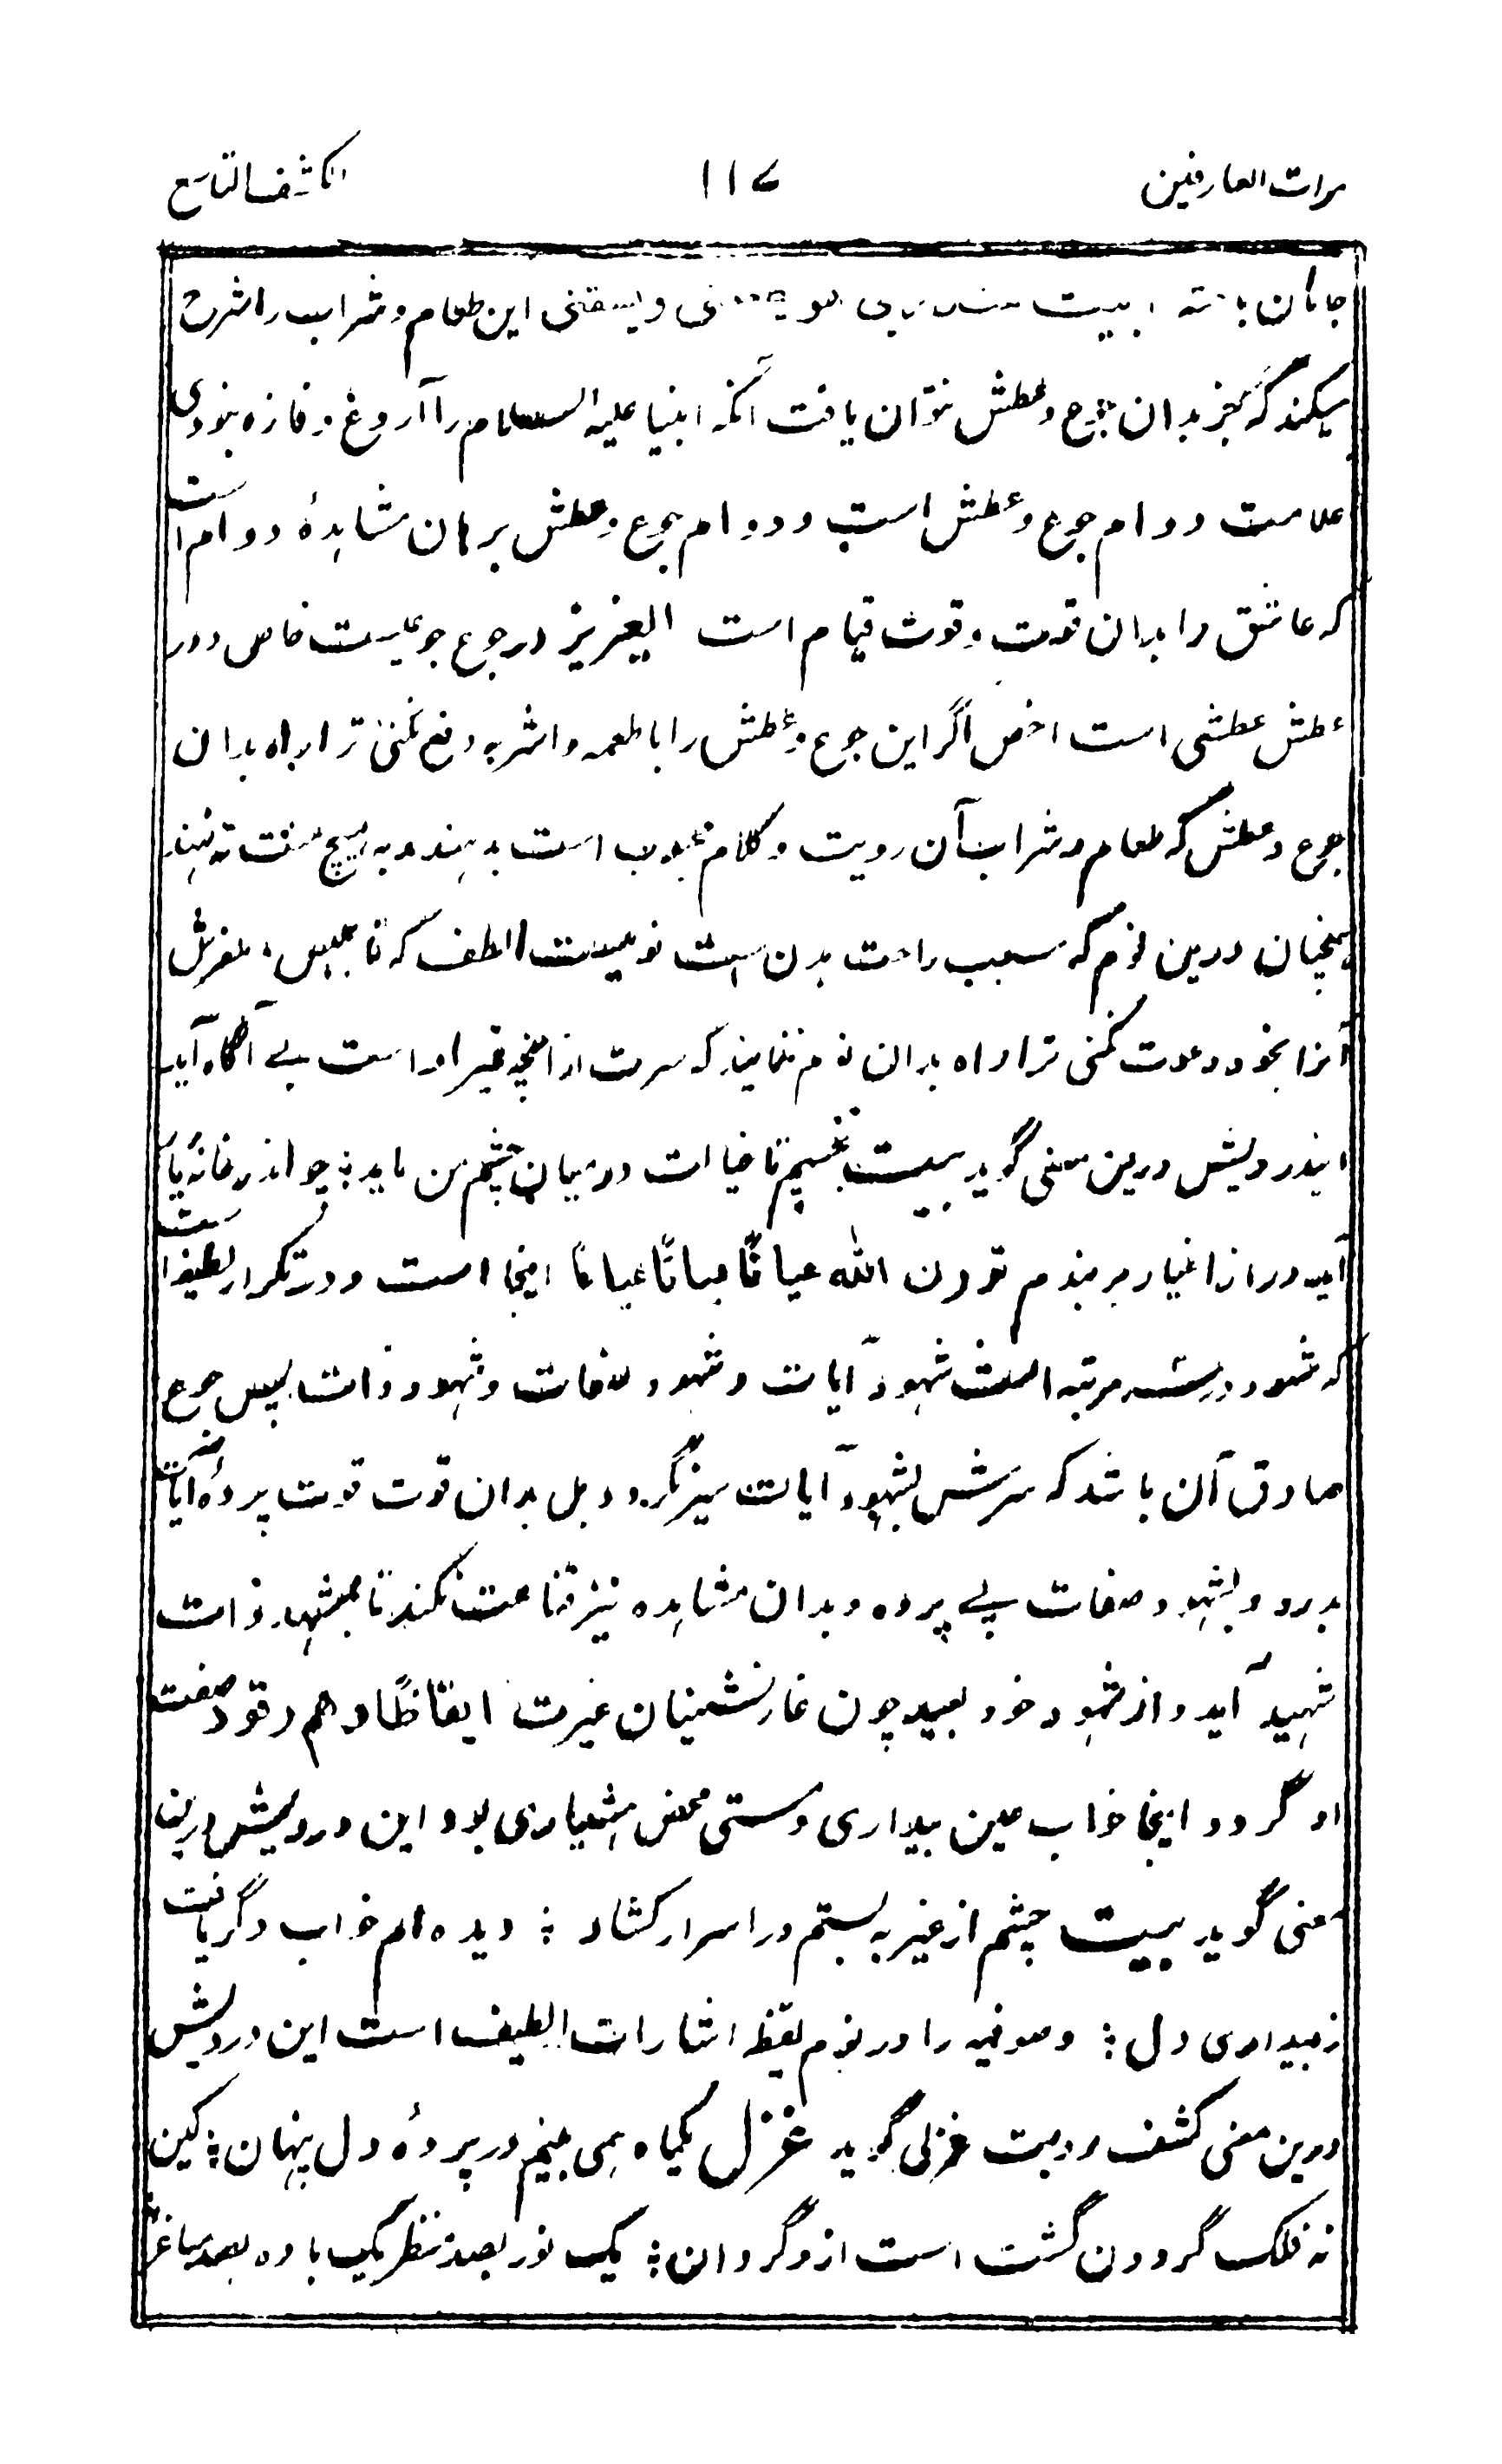 مرات العارفین ۱۱۷ الکاشف التاسع
جانان یافته ابیت عند ربی هو یطعمنی ویسقنی این طعام و شراب را شرح
میکند که بجز بدان جوع و عطش نتوان یافت آنکه انبیا علیه السلام را آروغ و فازه نبودی
علامت دوام جوع و عطش است و دوام جوع و عطش برهان مشاهدهٔ دوام است
که عاشق را بدان قوت و قوت قیام است ایعزیز در جوع جوعیست خاص و در
عطش عطشی است اخص اگر این جوع و عطش را باطعمه و اشربه دفع نکنی ترا راه بدان
جوع و عطش که طعام و شراب آن رویت و کلام محبوب است بدهند و به هیچ منت نه نهند
همچنان درین نوم که سبب راحت بدن است نومیست الطف که تا بلبس و مفرش
آنرا بخود دعوت نکنی ترا راه بدان نوم ننمایند که سرت از آنچه غیر او است بے آگاه آید
ایندرویش درین معنی گوید بیت نخسپم تا خیالت در میان چشم من باید ؛ چو اندر خانهٔ یار
آید در از اغیار بربندم ترون الله عیانًا بیانًا عیانًا اینجا است و در تکرار لطیفه است
که شهود در سه مرتبه است شهود آیات و شهود صفات و شهود ذات پس جوع
صادق آن باشد که سرش بشهود آیات سیر نگردد بل بدان قوت قوت پردهٔ آیات
بدرد و بشهود صفات پے برده و بدان مشاهده نیز قناعت نکند تا بمشهد ذات
شهید آید و از شهود خود بعید چون غار نشینان غیرت ایقاظًا و هم رقود صفت
او گردد اینجا خواب عین بیداری و مستی محض هشیاری بود این درویش درین
معنی گوید بیت چشم از غیر به بستم در اسرار کشاد ؛ دیده ام خواب دگر یافت
ز بیداری دل ؛ و صوفیه را در نوم یقظه اشارات لطیف است این درویش
درین معنی کشف رویت غزلی گوید غزل یکماه همی بینم در پردهٔ دل پنهان ؛ کین
نه فلک گردون گشت است ازو گردان ؛ یک نور بصد منظر یک باده بصد ساغر